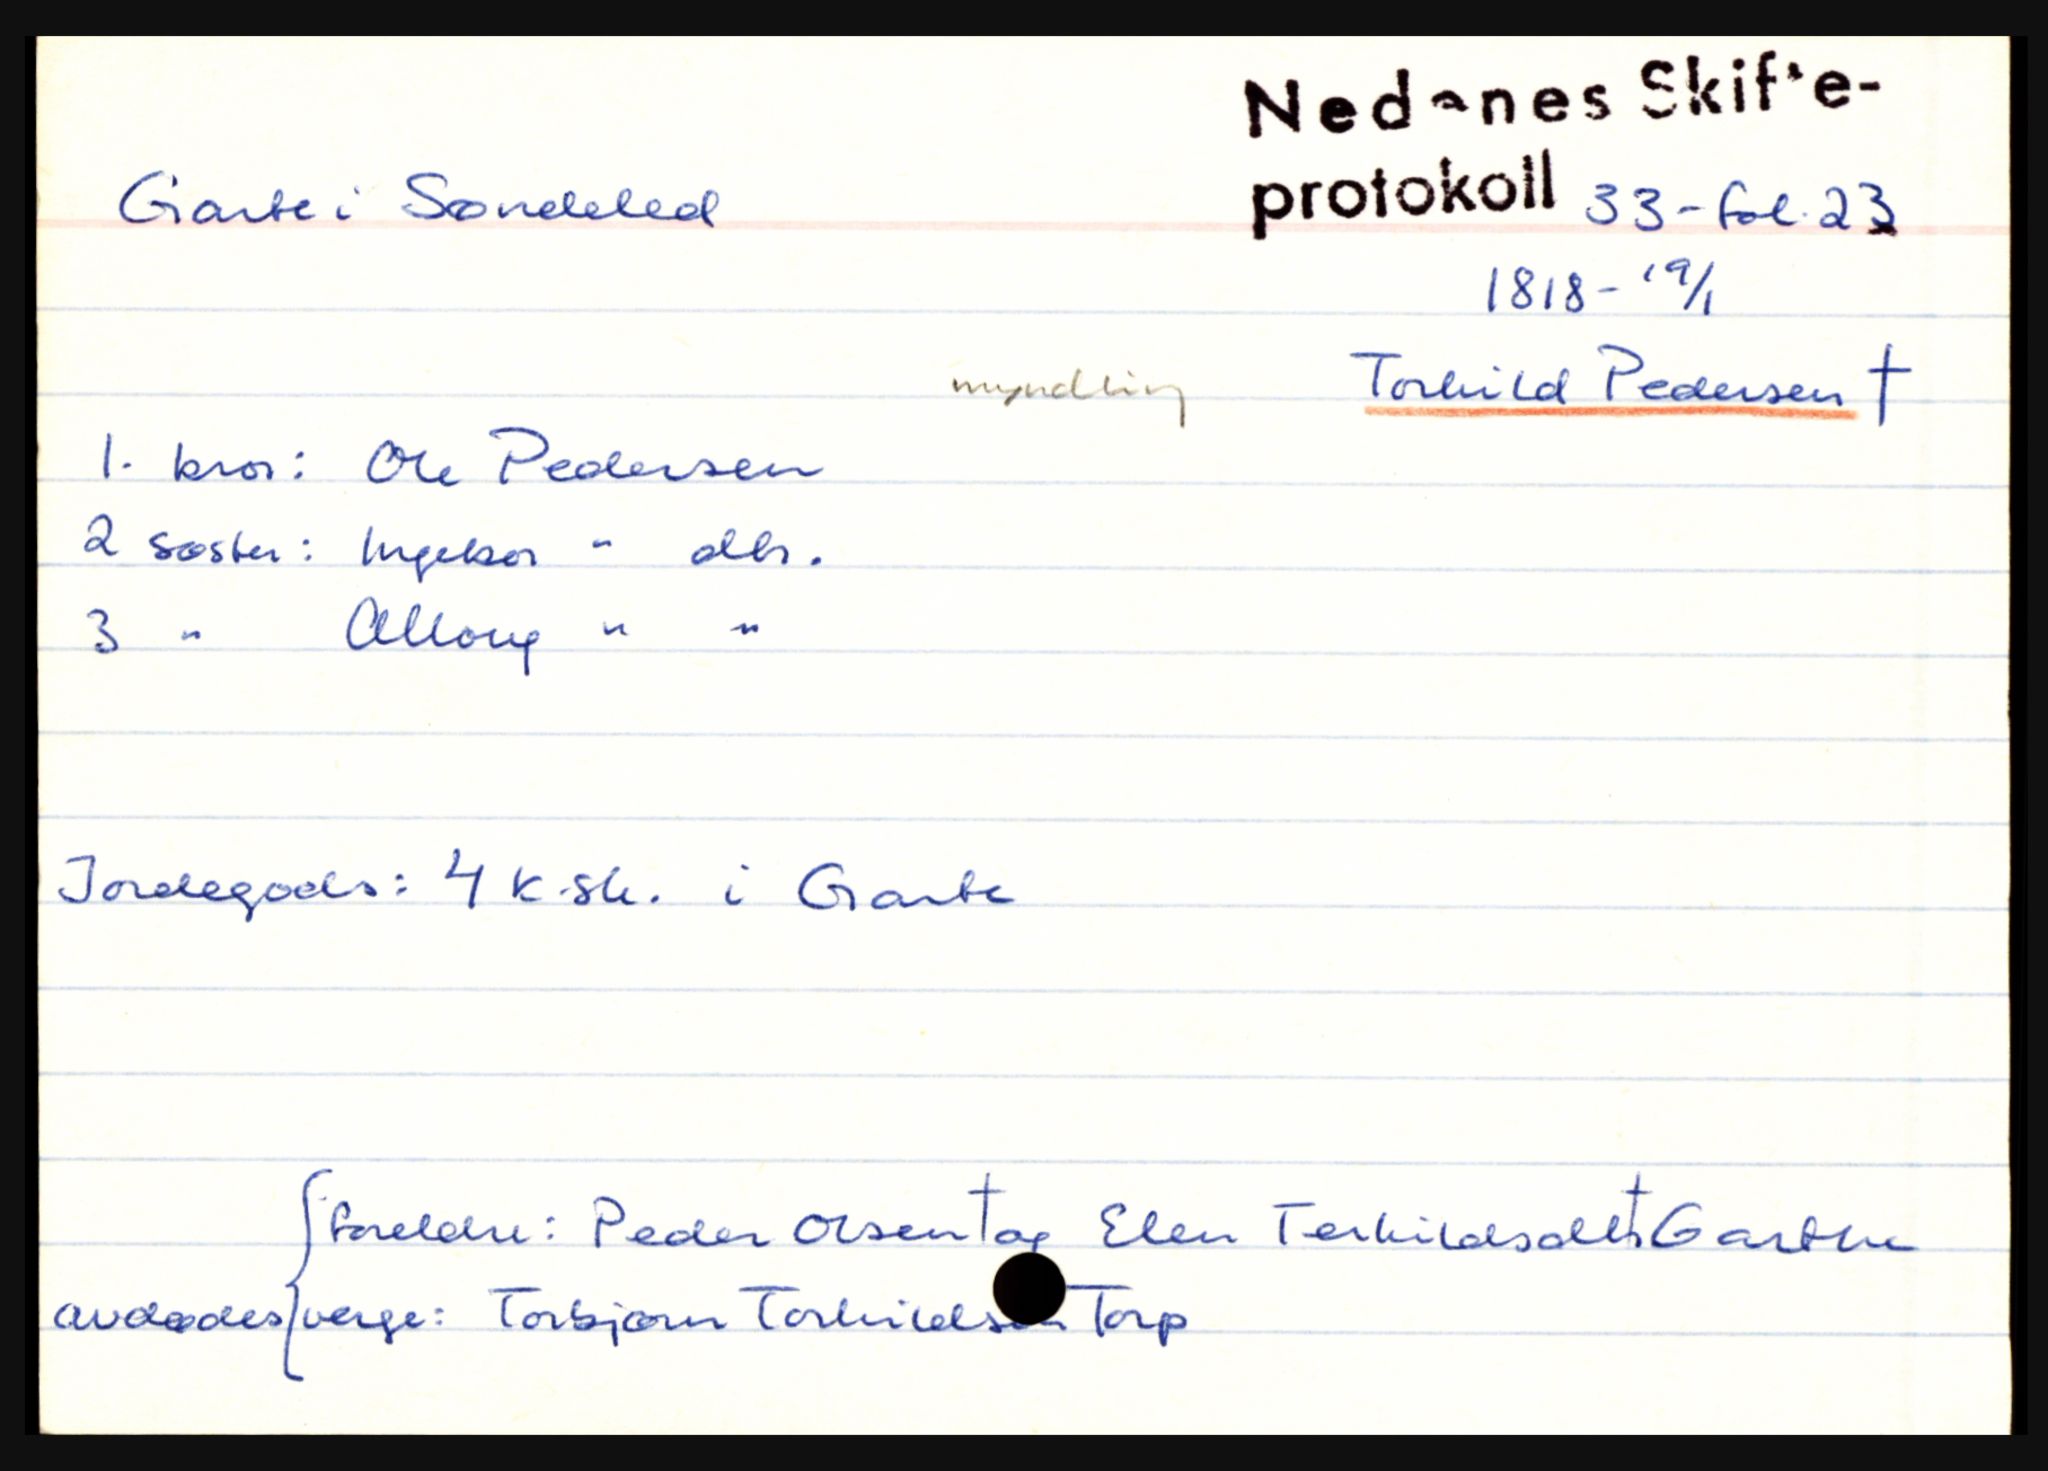 Nedenes Skifte-
protokoll 33 - fol. 23
Garte i Søndeled
1818 - 19/1
myndling Torkild Pedersen †
1. bror: Ole Pedersen
2 søster: Ingebor " dtr.
3 " Alloug " "
Jordegods: 4 k.sk. i Garte
foreldre: Peder Olsen † og Elen Terkildsdtr † Garthe
avdødes verge: Torbjørn Torkildsen Torp